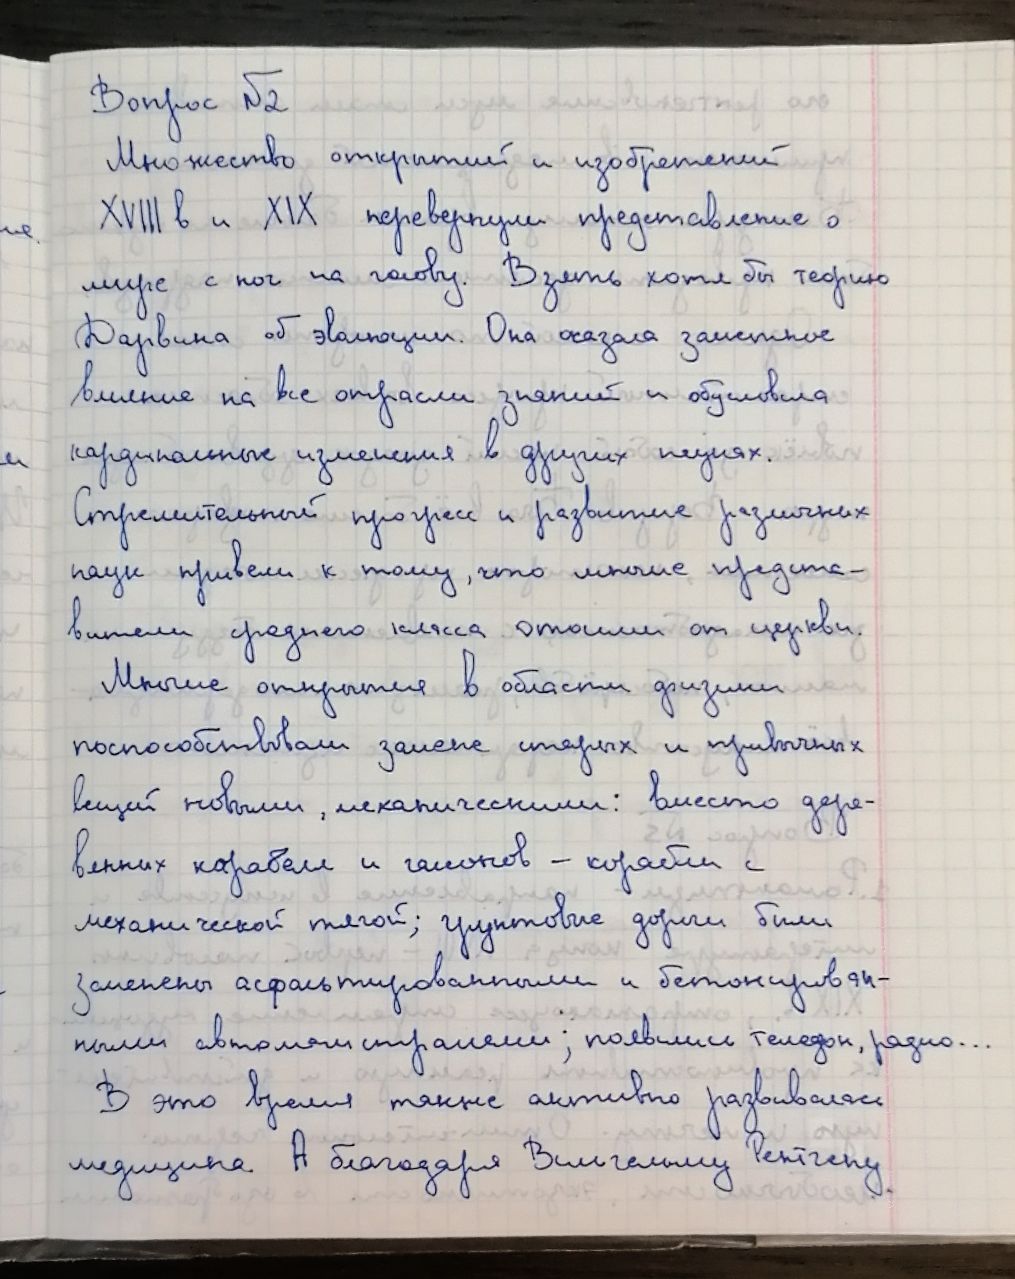 Вопрос №2
Множество открытий и изобретений
XVIII в и XIX перевернули представление о
мире с ног на голову. Взять хотя бы теорию
Дарвина об эволюции. Она оказала заметное
влияние на все отрасли знаний и обусловила
кардинальные изменения в других науках.
Стремительный прогресс и развитие различных
наук привели к тому, что многие предста-
вители среднего класса отошли от церкви.
Многие открытия в области физики
поспособствовали замене старых и привычных
вещей новыми, механическими: вместо дере-
венних карабели и галионов – корабли с
механической тягой; грунтовые дороги были
заменены асфальтированными и бетонирован-
ными автомагистралями; появились телефон, радио...
В это время также активно развивалась
медицина. А благодаря Вильгельму Рентгену
ие.